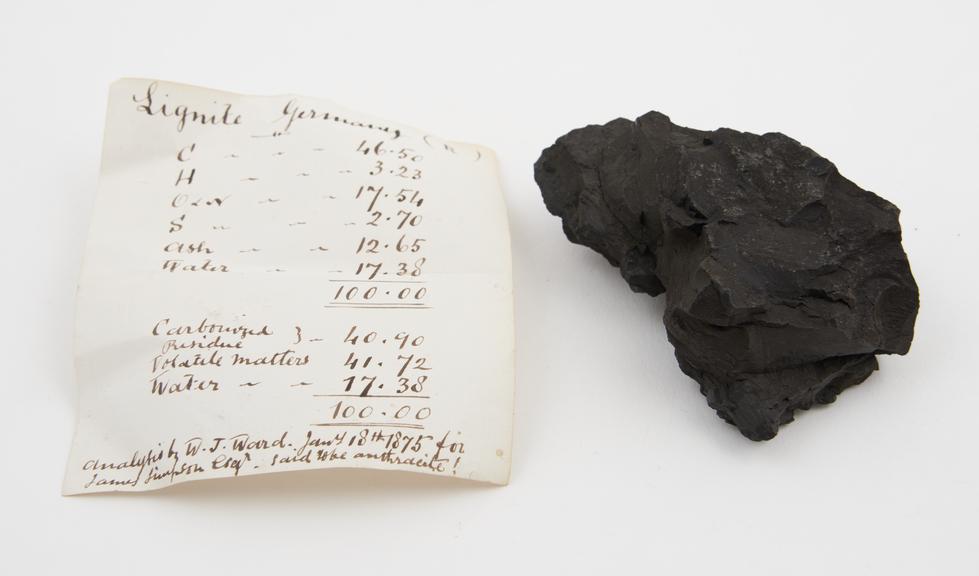 Lignite Germany (R)
C " " " 46.50
H " " " 3.23
O & N " " 17.54
S " " 2.70
Ash " " 12.65
Water " " 17.38
100.00
Carbonized
Residue } " 40.90
Volatile matters 41.72
Water " " 17.38
100.00
Analysis by W. J. Ward. Jany 18th 1875 for
James Simpson Esqr. said to be anthracite!